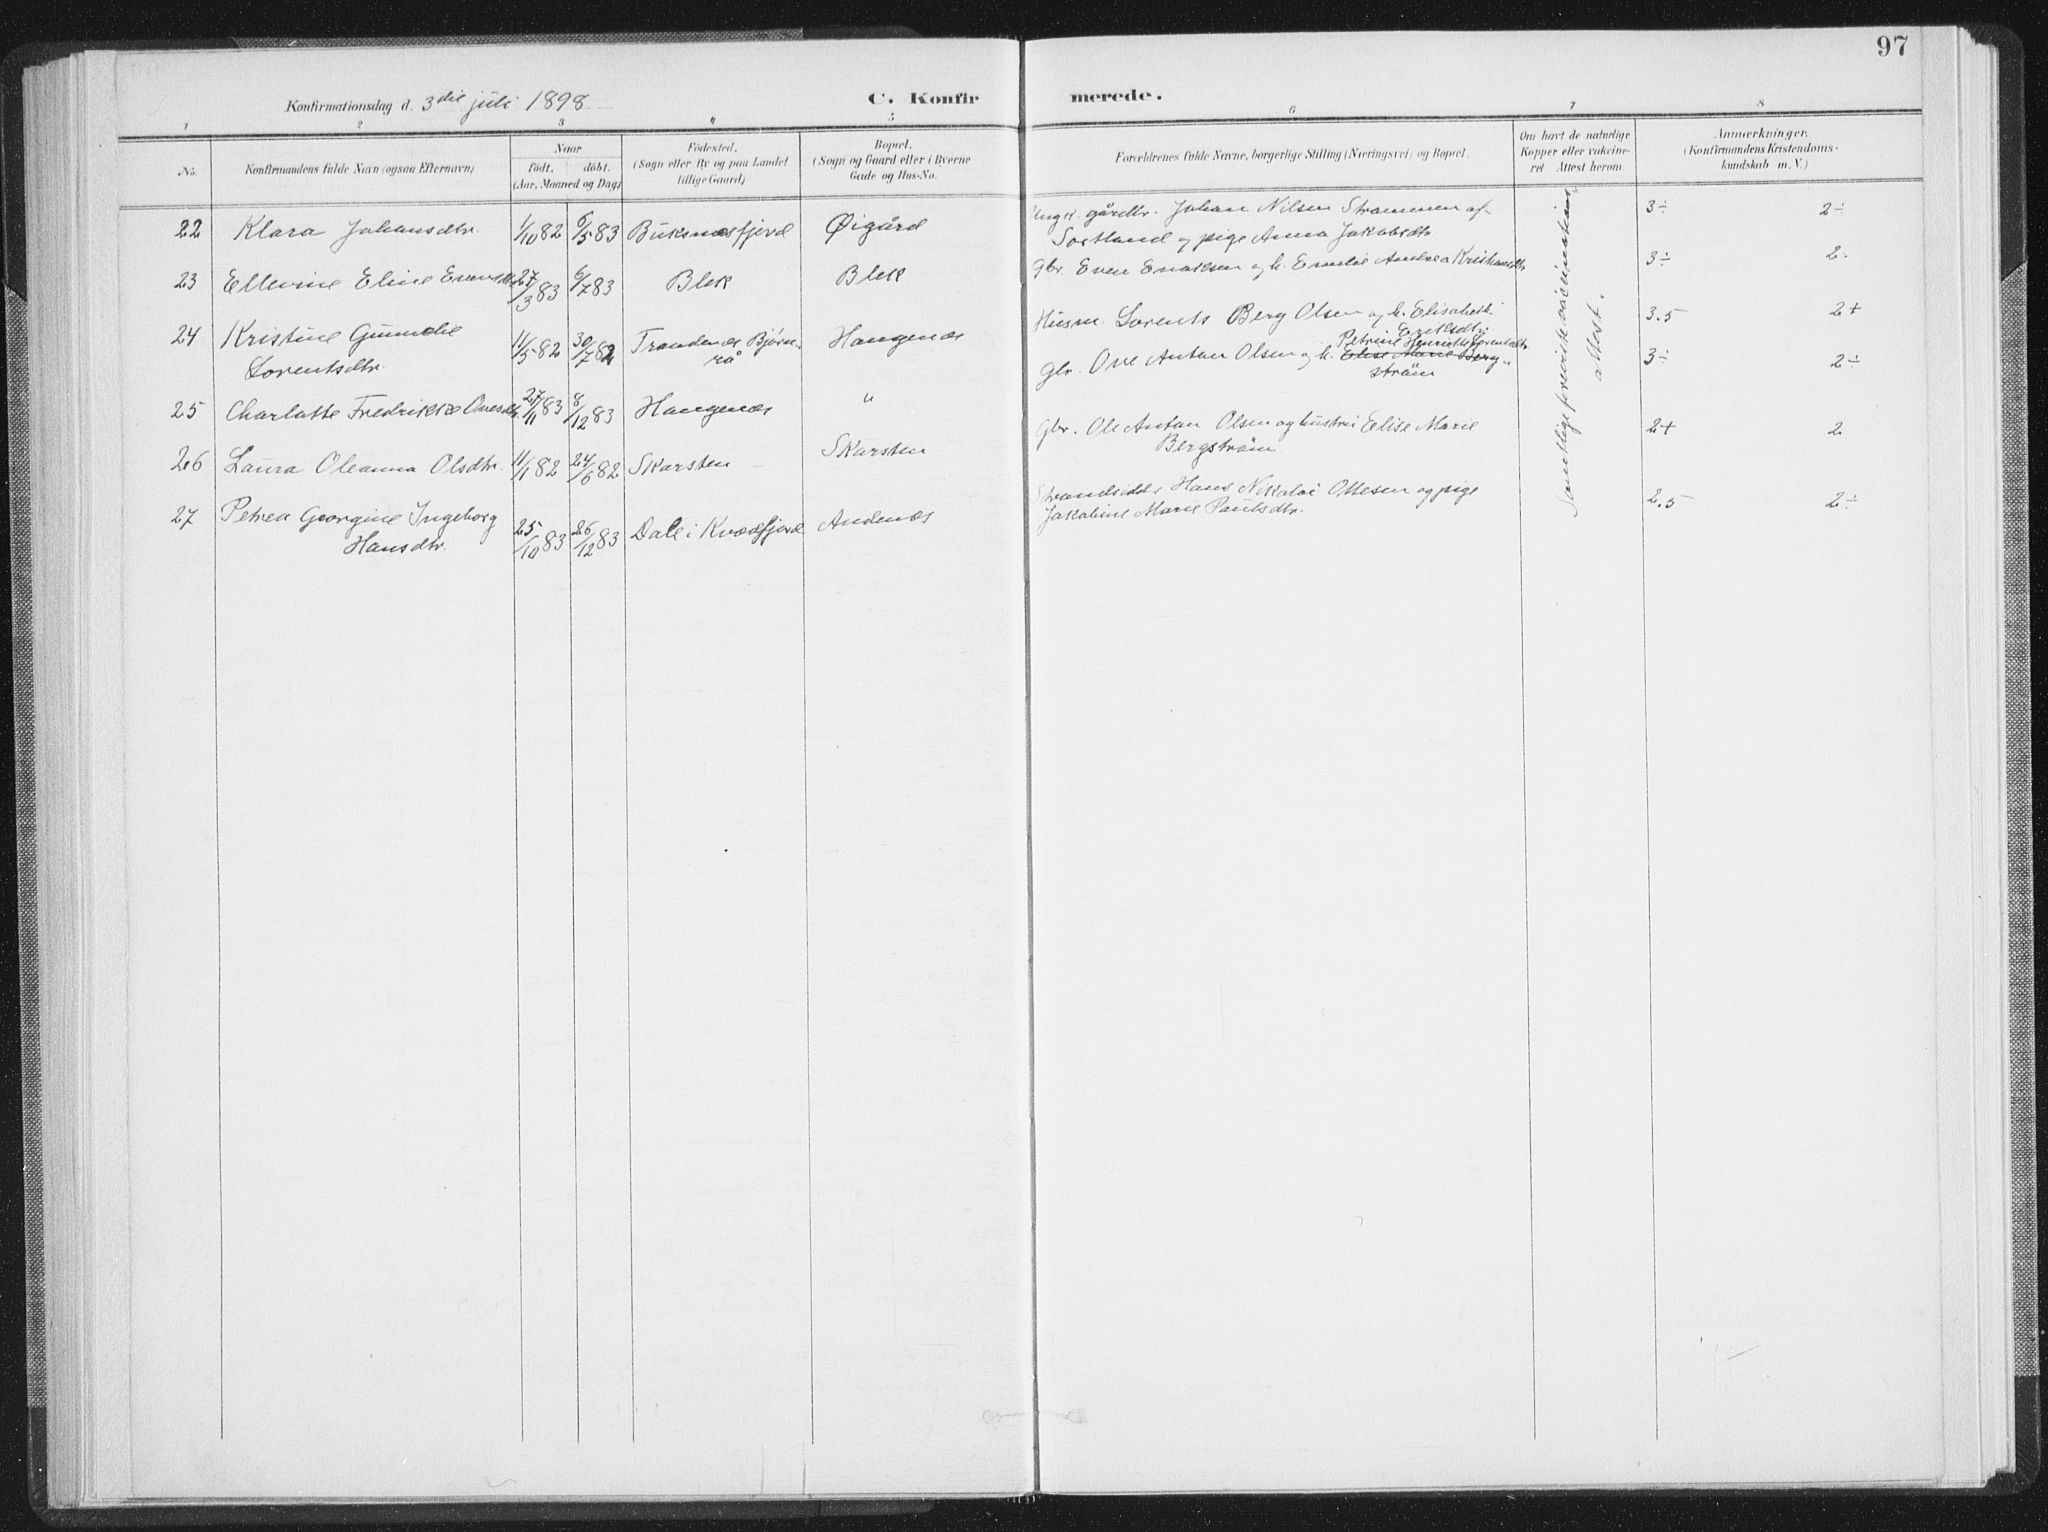 97
Konfirmationsdag d. 3die juli 1898
C. Konfirmerede.
1 2 3 4 5 6 7 8
No.
Konfirmandens fulde Navn (ogsaa Efternavn)
Naar
født, døbt.
(Aar, Maaned og Dag)
Fødested,
(Sogn eller By og paa Landet
tillige Gaard)
Bopæl.
(Sogn og Gaard eller i Byerne
Gade og Hus-No.
Forældrenes fulde Navne, borgerlige Stilling (Næringsvei) og Bopæl.
Om havt de naturlige
Kopper eller vakcine-
ret Attest herom.
Anmærkninger.
(Konfirmandens Kristendoms-
kundskab m. V.)
22 Klara Johansdtr. 1/10 82 6/5 83 Buksnesfjord Øigård
Ungk. gårdbr. Johan Nilsen Strømmen af
Sortland og pige Anna Jakobsdtr 3÷ 2÷
23 Ellevine Eline Evensdtr 27/3 83 6/7 83 Blek Blek
Gbr. Even Enoksen og h. Emelie Andrea Kristiansdtr 3÷ 2.
24 Kristine Gunnelie
Lorentsdtr. 11/5 82 30/7 82 Trondenes Bjørn-
rå Haugenes
Husm. Lorents Berg Olsen og h. Elisabeth
Eriksdtr. 3.5 2+
25 Charlotte Fredrikke Ovesdtr. 27/11 83 8/12 83 Haugenes "
Petrine Henriette Lorentsdtr
Gbr. Ove Anton Olsen og h. Elise Marie Berg-
strøm 3÷ 2÷
26 Laura Oleanna Olsdtr. 11/1 82 24/6 82 Skarsten Skarsten
Gbr. Ole Anton Olsen og hustru Elise Marie
Bergstrøm 2+ 2
27 Petrea Georgine Ingeborg
Hansdtr. 25/10 83 26/12 83 Dale i Kvædfjord Andenes
Strandsidder Hans Nikolai Ottesen og pige
Jakobine Marie Paulsdtr. 2.5 2÷
Samtlige foreviste vaccinations
attest.